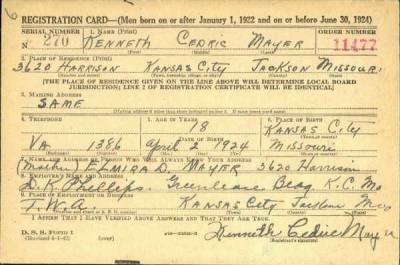 6
REGISTRATION CARD—(Men born on or after January 1, 1922 and on or before June 30, 1924)
SERIAL NUMBER 1. NAME (Print) ORDER NUMBER
270 KENNETH CEDRIC MAYER 11477
2. PLACE OF RESIDENCE (Print)
3620 HARRISON KANSAS CITY JACKSON MISSOURI
[THE PLACE OF RESIDENCE GIVEN ON THE LINE ABOVE WILL DETERMINE LOCAL BOARD
JURISDICTION; LINE 2 OF REGISTRATION CERTIFICATE WILL BE IDENTICAL]
3. MAILING ADDRESS
SAME
4. TELEPHONE 5. AGE IN YEARS 6. PLACE OF BIRTH
18 KANSAS CITY
VA 1386 April 2 1924 MISSOURI
7. NAME AND ADDRESS OF PERSON WHO WILL ALWAYS KNOW YOUR ADDRESS
Mother ELMIRA D. MAYER 3620 Harrison
8. EMPLOYER'S NAME AND ADDRESS
D. K. Phillips Greenlease Bldg. K.C. Mo
9. PLACE OF EMPLOYMENT OR BUSINESS
T.W.A. Kansas City Jackson Mo
I AFFIRM THAT I HAVE VERIFIED ABOVE ANSWERS AND THAT THEY ARE TRUE.
D. S. S. Form 1
(Revised 6-1-42) Kenneth Cedric Mayer
(Registrant's signature)